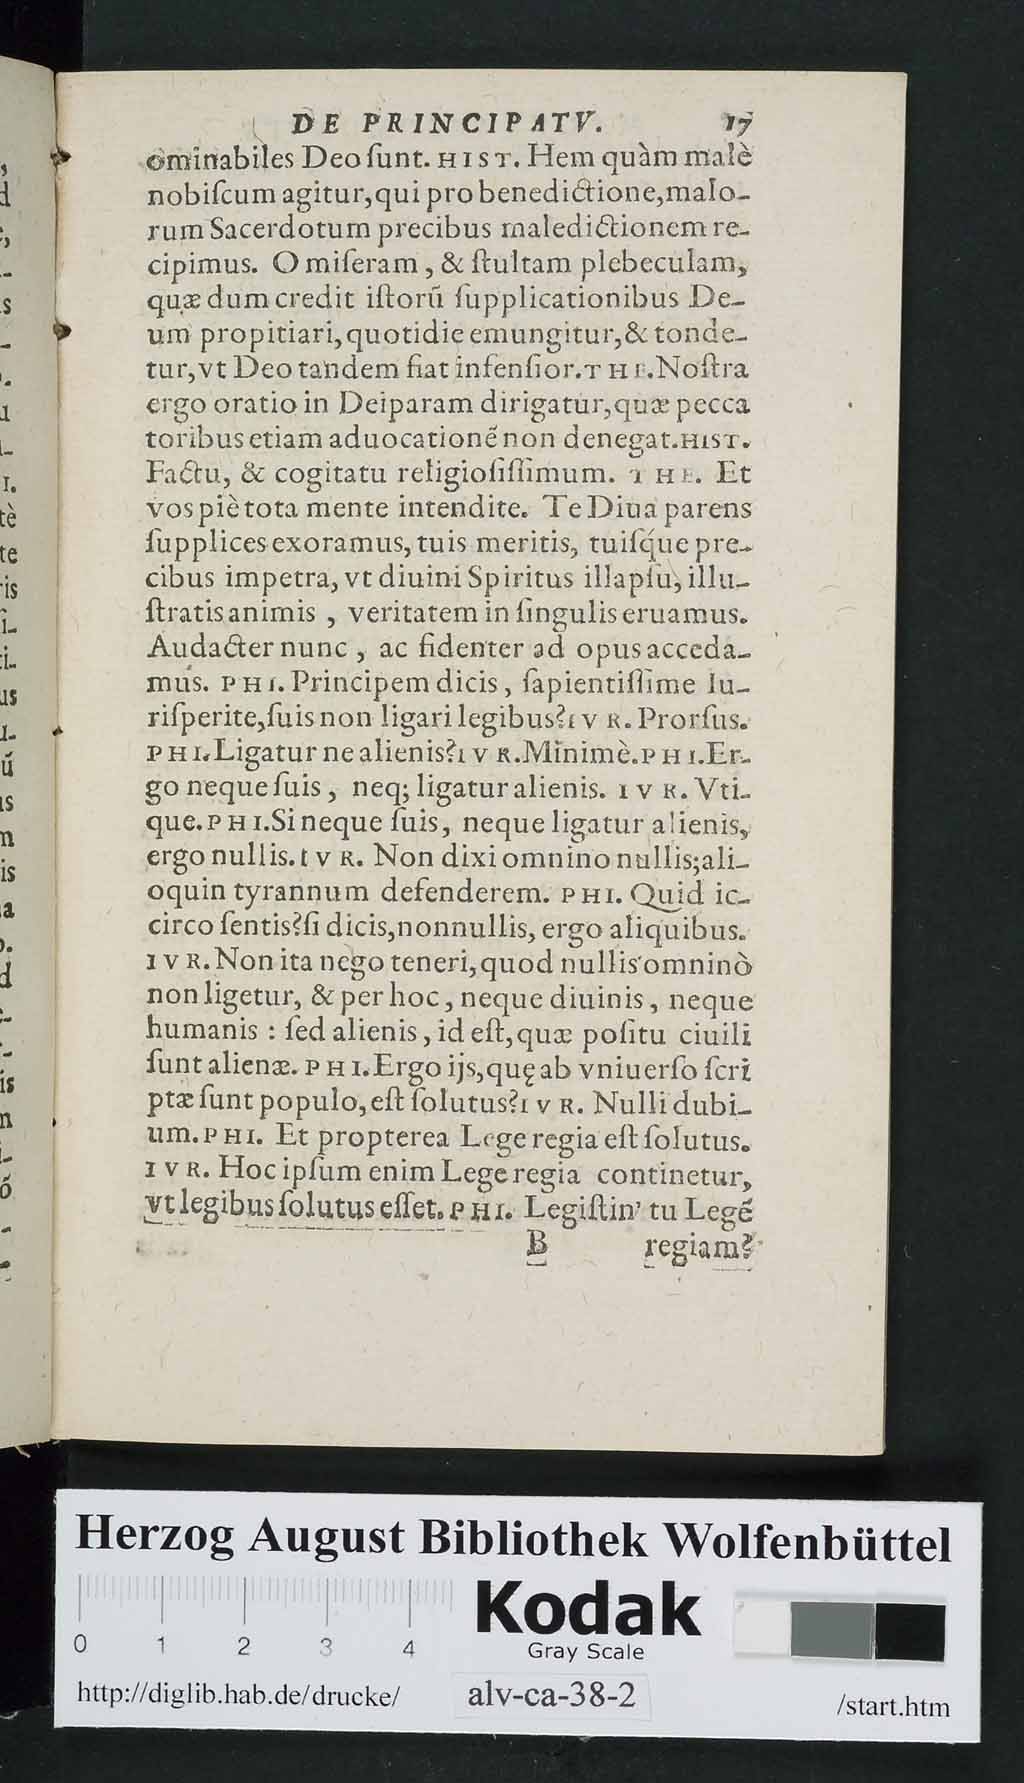 DE PRINCIPATV. 17
ominabiles Deo ſunt. HIST. Hem quàm malè
nobiſcum agitur, qui pro benedictione, malo-
rum Sacerdotum precibus maledictionem re-
cipimus. O miſeram, & ſtultam plebeculam,
quæ dum credit iſtorũ ſupplicationibus De-
um propitiari, quotidie emungitur, & tonde-
tur, vt Deo tandem fiat infenſior. THE. Noſtra
ergo oratio in Deiparam dirigatur, quæ pecca
toribus etiam aduocationẽ non denegat. HIST.
Factu, & cogitatu religioſiſſimum. THE. Et
vos piè tota mente intendite. Te Diua parens
ſupplices exoramus, tuis meritis, tuiſq́ue pre-
cibus impetra, vt diuini Spiritus illapſu, illu-
ſtratis animis, veritatem in ſingulis eruamus.
Audacter nunc, ac fidenter ad opus acceda-
mus. PHI. Principem dicis, ſapientiſſime Iu-
riſperite, ſuis non ligari legibus? IVR. Prorſus.
PHI. Ligatur ne alienis? IVR. Minimè. PHI. Er-
go neque ſuis, neq; ligatur alienis. IVR. Vti-
que. PHI. Si neque ſuis, neque ligatur alienis,
ergo nullis. IVR. Non dixi omnino nullis; ali-
oquin tyrannum defenderem. PHI. Quid ic-
circo ſentis? ſi dicis, nonnullis, ergo aliquibus.
IVR. Non ita nego teneri, quod nullis omninò
non ligetur, & per hoc, neque diuinis, neque
humanis : ſed alienis, id eſt, quæ poſitu ciuili
ſunt alienæ. PHI. Ergo ijs, quę ab vniuerſo ſcri
ptæ ſunt populo, eſt ſolutus? IVR. Nulli dubi-
um. PHI. Et propterea Lege regia eſt ſolutus.
IVR. Hoc ipſum enim Lege regia continetur,
vt legibus ſolutus eſſet. PHI. Legiſtin' tu Legẽ
B regiam?
Herzog August Bibliothek Wolfenbüttel
Kodak
Gray Scale
0 1 2 3 4
http://diglib.hab.de/drucke/ alv-ca-38-2 /start.htm